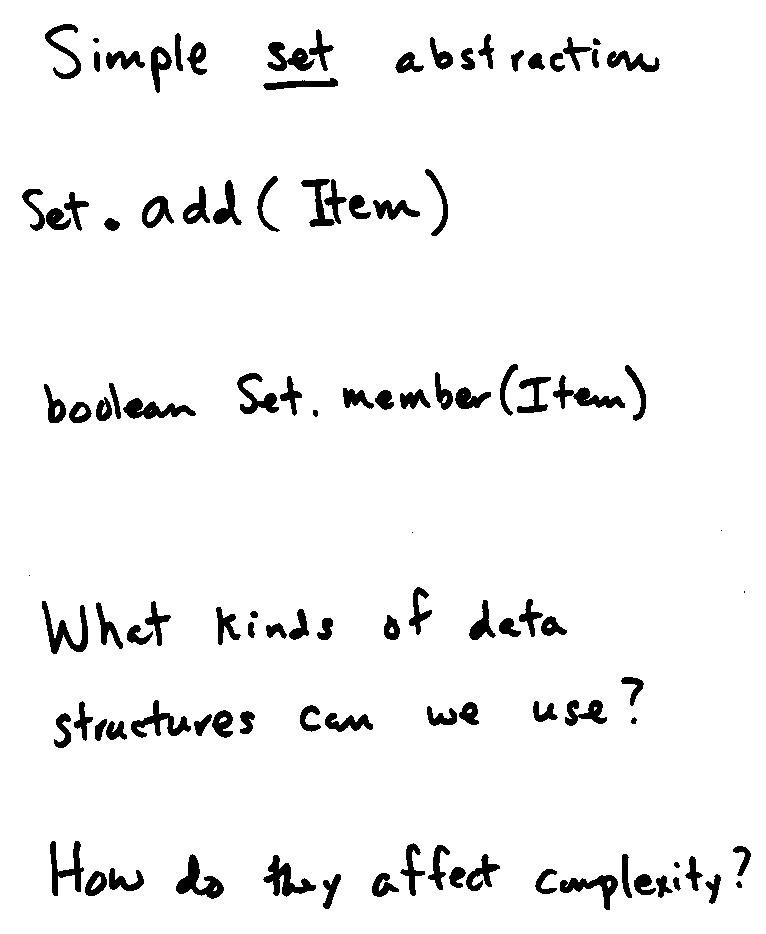 Simple set abstraction
Set. add (Item)
boolean Set. member (Item)
What kinds of data
structures can we use?
How do they affect complexity?